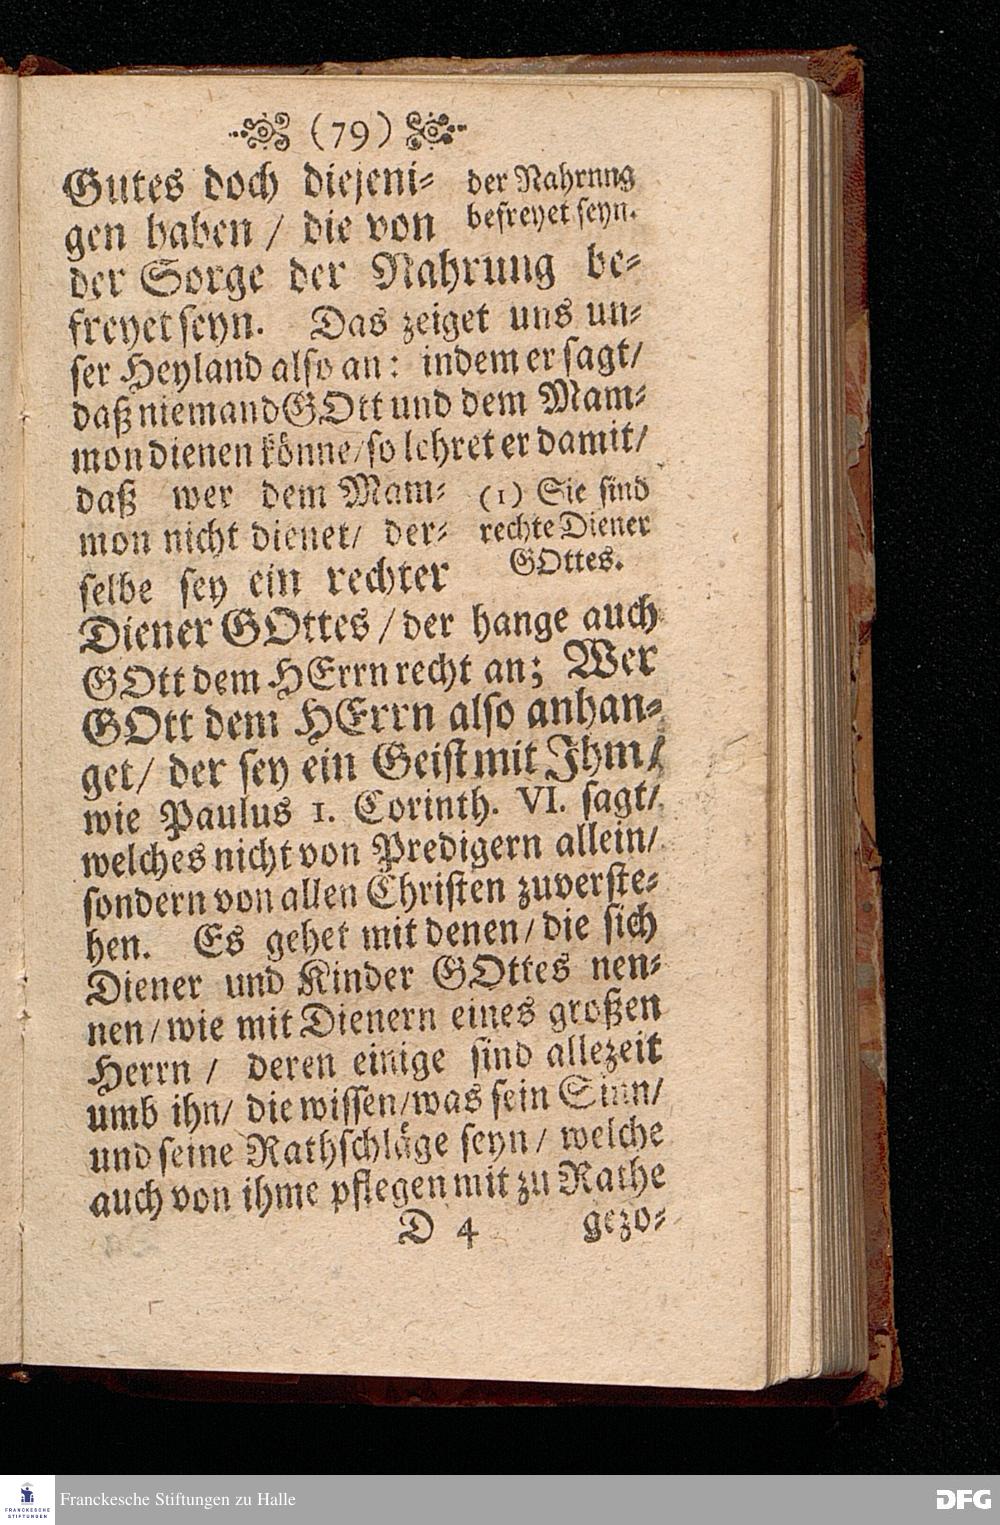 (79)
Gutes doch diejeni⸗
gen haben / die von
der Nahrnng
befreyet seyn.
der Sorge der Nahrung be⸗
freyet seyn. Das zeiget uns un⸗
ser Heyland also an: indem er sagt/
daß niemand GOtt und dem Mam⸗
mon dienen könne/so lehret er damit/
daß wer dem Mam⸗
mon nicht dienet/ der⸗
selbe sey ein rechter
(1) Sie sind
rechte Diener
GOttes.
Diener GOttes / der hange auch
GOtt dem HErrn recht an; Wer
GOtt dem HErrn also anhan⸗
get/ der sey ein Geist mit Ihm/
wie Paulus 1. Corinth. VI. sagt/
welches nicht von Predigern allein/
sondern von allen Christen zuverste⸗
hen. Es gehet mit denen/die sich
Diener und Kinder GOttes nen⸗
nen/wie mit Dienern eines großen
Herrn / deren einige sind allezeit
umb ihn/ die wissen/was sein Sinn/
und seine Rathschläge seyn / welche
auch von ihme pflegen mit zu Rathe
D 4 gezo⸗
FRANCKESCHE
STIFTUNGEN
Franckesche Stiftungen zu Halle
DFG